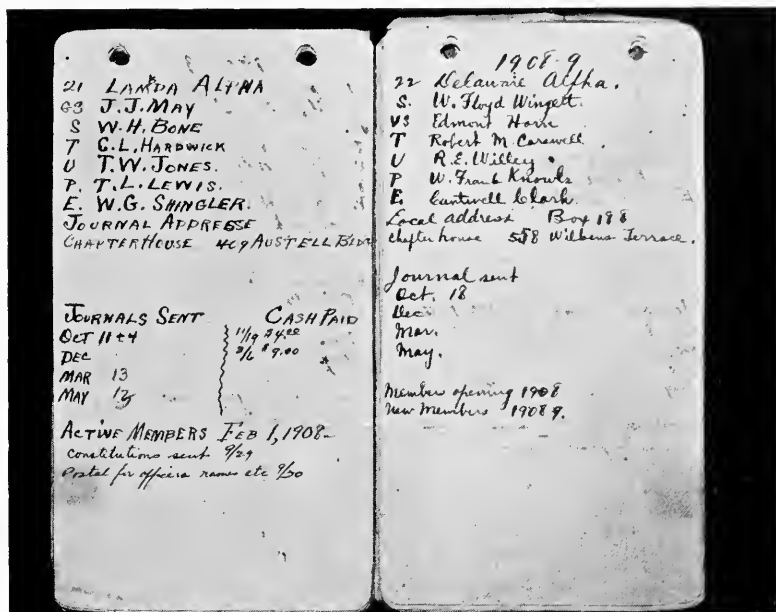 21 LAMDA ALPHA
GS J.J. MAY
S W.H. BONE
T C.L. HARDWICK
U T.W. JONES.
P. T.L. LEWIS.
E. W.G. SHINGLER.
JOURNAL ADDRESSE
CHAPTER HOUSE 409 AUSTELL BLDG
JOURNALS SENT CASH PAID
OCT 11 + 4 11/19 $4.00
DEC 3/6 $9.00
MAR 13
MAY 12
ACTIVE MEMBERS FEB 1, 1908-
Constitutions sent 9/29
Postal for officers names etc 9/30
1908-9
22 Delaware Alpha.
S. W. Floyd Wingett.
VS Edmont Horn
T Robert M. Carswell
U R.E. Willey.
P W. Frank Knowls
E. Cantwell Clark.
Local address Box 198
Chapter house 558 Wilbens Terrace.
Journal sent
Oct. 18
Dec.
Mar.
May.
Members opening 1908
New Members 1908 9.